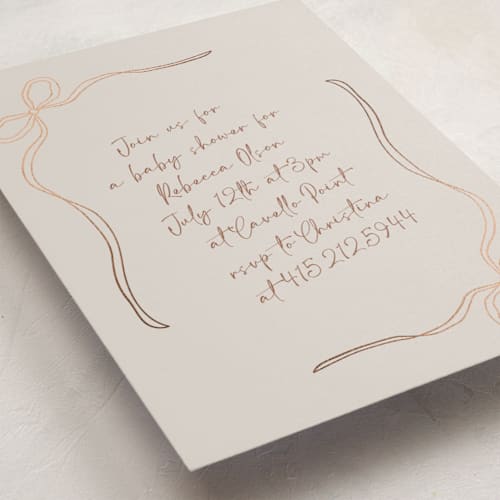 Join us for
a baby shower for
Rebecca Olson
July 12th at 3pm
at Cavello Point
rsvp to Christina
at 415 212 5944